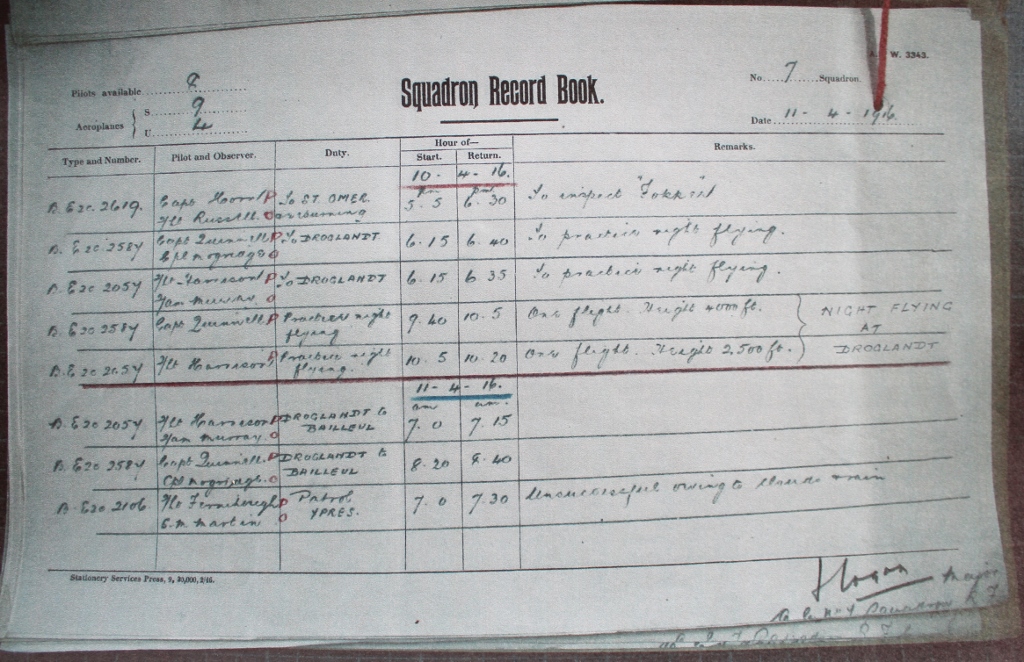 W. 3343.
Pilots available 8
Aeroplanes { S 9
U 4
Squadron Record Book.
No. 7 Squadron.
Date 11 - 4 - 1916
Type and Number. Pilot and Observer. Duty. Hour of— Start. Return. Remarks.
10 - 4 - 16.
pm pm
B.E2c. 2619. Capt P To ST. OMER. 5.5 6.30 To inspect "Fokker"
F/Lt Russell O returning
B.E2c 2584 Capt Quinnell P To DROGLANDT 6.15 6.40 To practice night flying.
Cpl O
B.E2c 2057 F/Lt Harrison P To DROGLANDT 6.15 6.35 To practice night flying.
F/am Murray O
B.E2c 2584 Capt Quinnell P Practice night 9.40 10.5 One flight. Height 4000 ft.
flying.
B.E2c 2057 F/Lt Harrison P Practice night 10.5 10.20 One flight. Height 2,500 ft.
flying.
NIGHT FLYING
AT
DROGLANDT
11 - 4 - 16.
am am.
B.E2c 2057 F/Lt Harrison P DROGLANDT to 7.0 7.15
F/am Murray. O BAILLEUL
B.E2c 2584 Capt Quinnell. P DROGLANDT to 8.20 8.40
Cpl O BAILLEUL
B.E2c 2106 F/Lt P Patrol 7.0 7.30 Unsuccessful owing to clouds & rain
E.M. Martin O YPRES.
Stationery Services Press, 9, 30,000, 2/16.
Major
Squadron R F